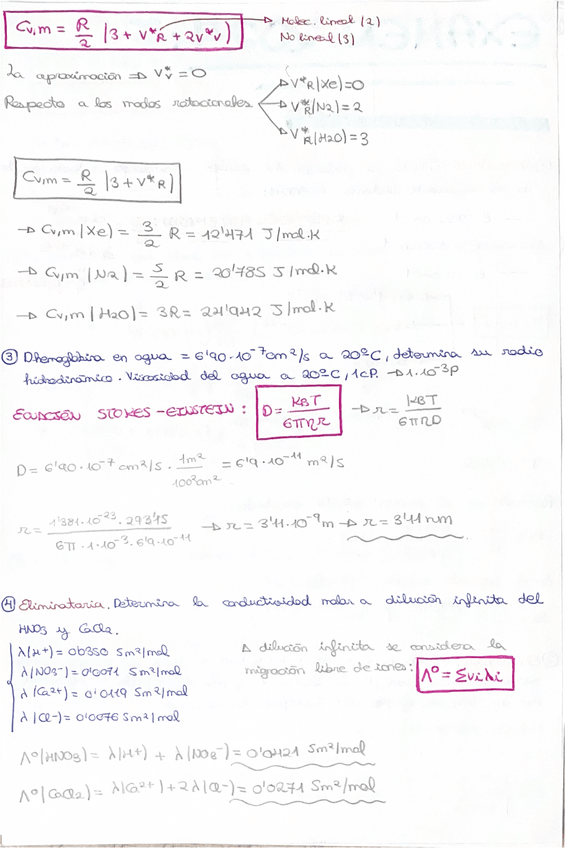 Cv,m = R/2 (3 + V*R + 2V*v) → Molec. lineal (2)
No lineal (3)
La aproximación ⇒ V*v = 0
Respecto a los modos rotacionales → V*R(Xe) = 0
→ V*R(N2) = 2
→ V*R(H2O) = 3
Cv,m = R/2 (3 + V*R)
→ Cv,m (Xe) = 3/2 R = 12'471 J/mol·K
→ Cv,m (N2) = 5/2 R = 20'785 J/mol·K
→ Cv,m (H2O) = 3R = 24'942 J/mol·K
③ Dhemoglobina en agua = 6'90·10⁻⁷ cm²/s a 20ºC, determina su radio
hidrodinámico. Viscosidad del agua a 20ºC, 1cP. → 1·10⁻³P
ECUACIÓN STOKES-EINSTEIN: D = KBT/6πηr → r = KBT/6πηD
D = 6'90·10⁻⁷ cm²/s · 1m²/100²cm² = 6'9·10⁻¹¹ m²/s
r = 1'381·10⁻²³·293'15/6π·1·10⁻³·6'9·10⁻¹¹ → r = 3'11·10⁻⁹m → r = 3'11 nm
④ Eliminatoria. Determina la conductividad molar a dilución infinita del
HNO3 y CaCl2.
λ(H+) = 0'0350 Sm²/mol
λ(NO3⁻) = 0'0071 Sm²/mol
λ(Ca2+) = 0'0119 Sm²/mol
λ(Cl⁻) = 0'0076 Sm²/mol
A dilución infinita se considera la
migración libre de iones: Λ⁰ = Σviλi
Λ⁰(HNO3) = λ(H+) + λ(NO3⁻) = 0'0421 Sm²/mol
Λ⁰(CaCl2) = λ(Ca2+) + 2λ(Cl⁻) = 0'0271 Sm²/mol